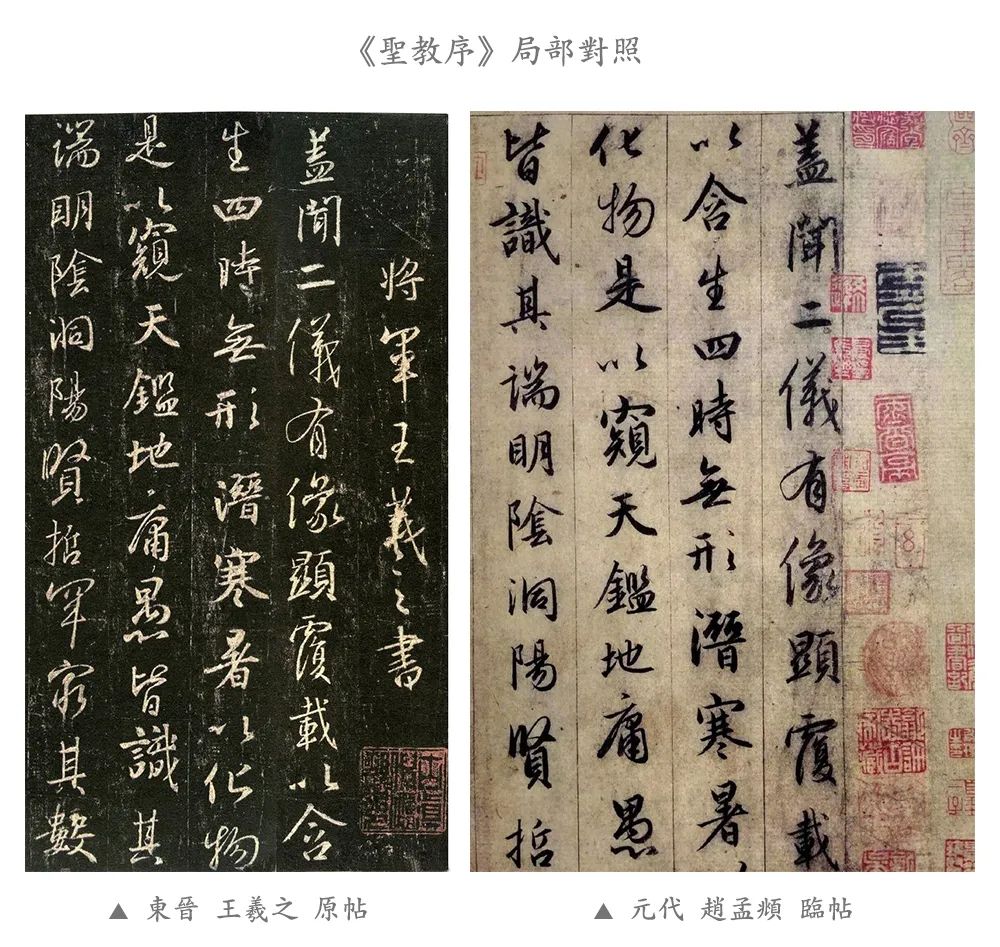 《聖教序》局部對照
將軍王羲之書
蓋聞二儀有像顯覆載以含
生四時無形潛寒暑以化物
是以窺天鑑地庸愚皆識其
端明陰洞陽賢哲罕窮其數
蓋聞二儀有像顯覆載
以含生四時無形潛寒暑
化物是以窺天鑑地庸愚
皆識其端明陰洞陽賢哲
▲ 東晉 王羲之 原帖
▲ 元代 趙孟頫 臨帖